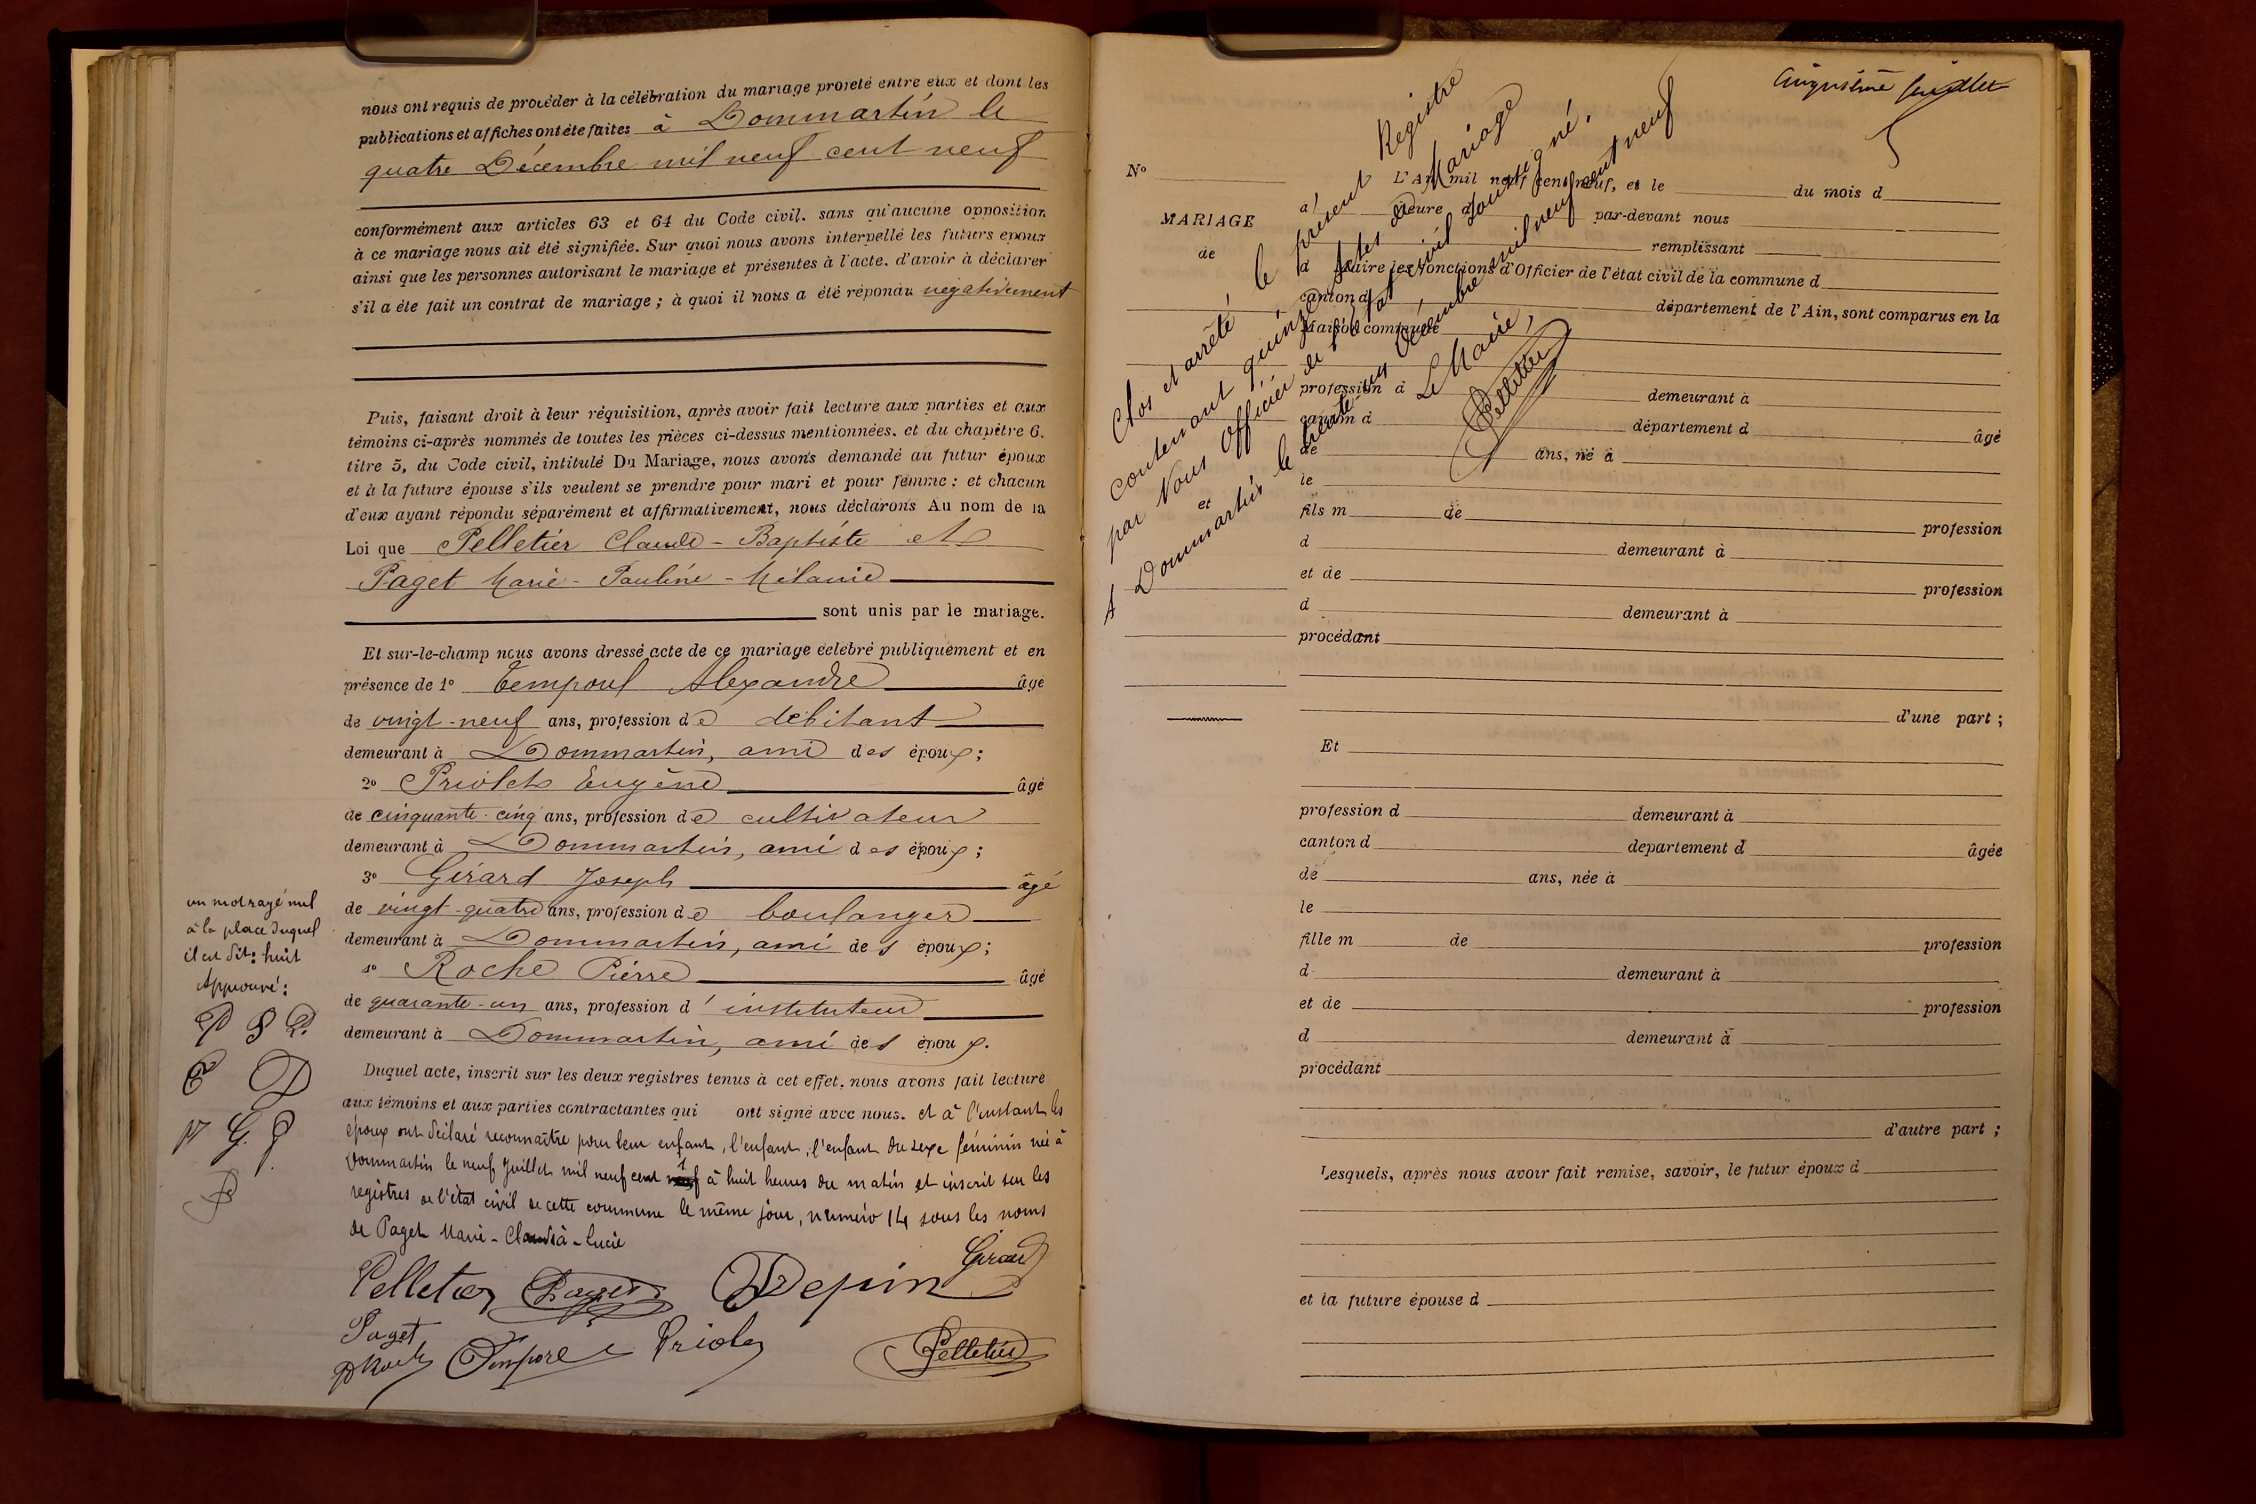 nous ont requis de procéder à la célébration du mariage projeté entre eux et dont les
publications et affiches ont été faites à Dommartin le
quatre Décembre mil neuf cent neuf
conformément aux articles 63 et 64 du Code civil. sans qu'aucune opposition
à ce mariage nous ait été signifiée. Sur quoi nous avons interpellé les futurs époux
ainsi que les personnes autorisant le mariage et présentes à l'acte. d'avoir à déclarer
s'il a été fait un contrat de mariage ; à quoi il nous a été répondu négativement
Puis, faisant droit à leur réquisition, après avoir fait lecture aux parties et aux
témoins ci-après nommés de toutes les pièces ci-dessus mentionnées. et du chapitre 6.
titre 5, du Code civil, intitulé Du Mariage, nous avons demandé au futur époux
et à la future épouse s'ils veulent se prendre pour mari et pour femme : et chacun
d'eux ayant répondu séparément et affirmativement, nous déclarons Au nom de la
Loi que Pelletier Claude - Baptiste et
Paget Marie - Pauline - Mélanie
sont unis par le mariage.
Et sur-le-champ nous avons dressé acte de ce mariage célébré publiquement et en
présence de 1º Temporel Alexandre âgé
de vingt-neuf ans, profession de débitant
demeurant à Dommartin, ami des époux ;
2º Priolet Eugène âgé
de cinquante-cinq ans, profession de cultivateur
demeurant à Dommartin, ami des époux ;
3º Girard Joseph âgé
de vingt-quatre ans, profession de boulanger
demeurant à Dommartin, ami des époux ;
4º Roche Pierre âgé
de quarante-un ans, profession d'instituteur
demeurant à Dommartin, ami des époux.
Duquel acte, inscrit sur les deux registres tenus à cet effet. nous avons fait lecture
aux témoins et aux parties contractantes qui ont signé avec nous. et à l'instant les
époux ont déclaré reconnaître pour leur enfant, l'enfant, l'enfant du sexe féminin née à
Dommartin le neuf Juillet mil neuf cent neuf à huit heures du matin et inscrit sur les
registres de l'état civil de cette commune le même jour, numéro 14 sous les noms
de Paget Marie - Claudia - Lucie
un mot rayé nul
à la place duquel
il est dit : huit
Approuvé :
Pelletier Paget Depin Girard
Paget
PRoche Temporel Priolet Pelletier
cinquième feuillet
Clos et arrêté le présent Registre
contenant quinze actes de Mariage
par Nous Officier de l'état civil soussigné,
A Dommartin le trente un Décembre mil neuf cent neuf
Le Maire,
Pelletier
Nº
MARIAGE
de
et
L'An mil neuf cent neuf, et le du mois d
à heure par-devant nous
remplissant
à Maire les fonctions d'Officier de l'état civil de la commune d
canton d département de l'Ain, sont comparus en la
Maison commune
profession d demeurant à
canton d département d âgé
de ans, né à
le
fils m de profession
d demeurant à
et de profession
d demeurant à
procédant
d'une part ;
Et
profession d demeurant à
canton d département d âgée
de ans, née à
le
fille m de profession
d demeurant à
et de profession
d demeurant à
procédant
d'autre part ;
Lesquels, après nous avoir fait remise, savoir, le futur époux d
et la future épouse d